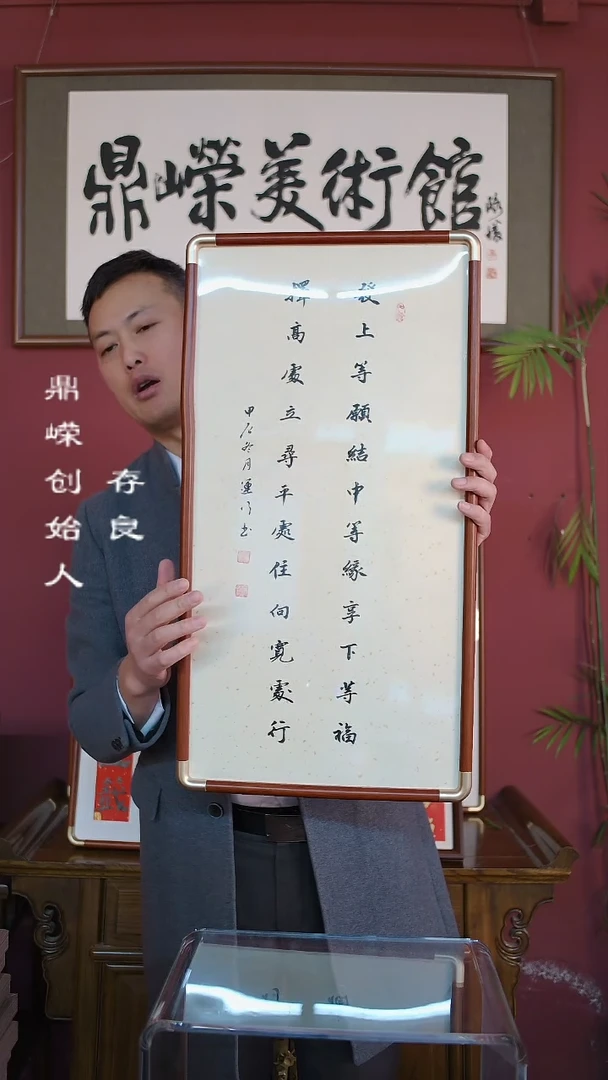 鼎嶸美術館
發上等願結中等緣享下等福
擇高處立尋平處住向寬處行
甲辰冬月
书
鼎嵘创始人
存良